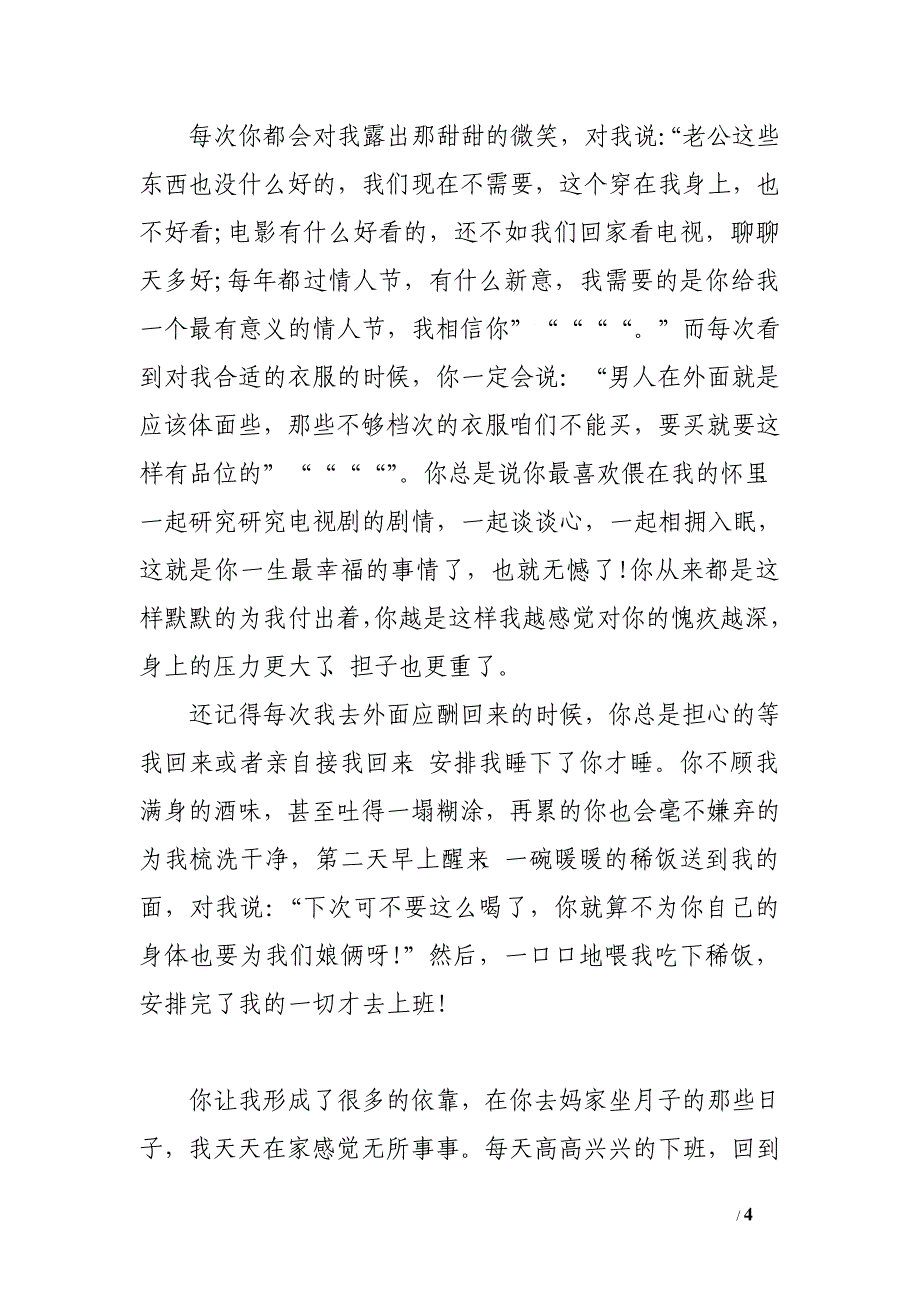 每次你都会对我露出那甜甜的微笑，对我说：“老公这些
东西也没什么好的，我们现在不需要，这个穿在我身上，也
不好看；电影有什么好看的，还不如我们回家看电视，聊聊
天多好；每年都过情人节，有什么新意，我需要的是你给我
一个最有意义的情人节，我相信你” “ “ “ “。”而每次看
到对我合适的衣服的时候，你一定会说： “男人在外面就是
应该体面些，那些不够档次的衣服咱们不能买，要买就要这
样有品位的” “ “ “ “”。你总是说你最喜欢偎在我的怀里
一起研究研究电视剧的剧情，一起谈谈心，一起相拥入眠，
这就是你一生最幸福的事情了，也就无憾了！你从来都是这
样默默的为我付出着，你越是这样我越感觉对你的愧疚越深，
身上的压力更大了、担子也更重了。
还记得每次我去外面应酬回来的时候，你总是担心的等
我回来或者亲自接我回来、安排我睡下了你才睡。你不顾我
满身的酒味，甚至吐得一塌糊涂，再累的你也会毫不嫌弃的
为我梳洗干净，第二天早上醒来、一碗暖暖的稀饭送到我的
面，对我说：“下次可不要这么喝了，你就算不为你自己的
身体也要为我们娘俩呀！”然后，一口口地喂我吃下稀饭，
安排完了我的一切才去上班！
你让我形成了很多的依靠，在你去妈家坐月子的那些日
子，我天天在家感觉无所事事。每天高高兴兴的下班，回到
/ 4